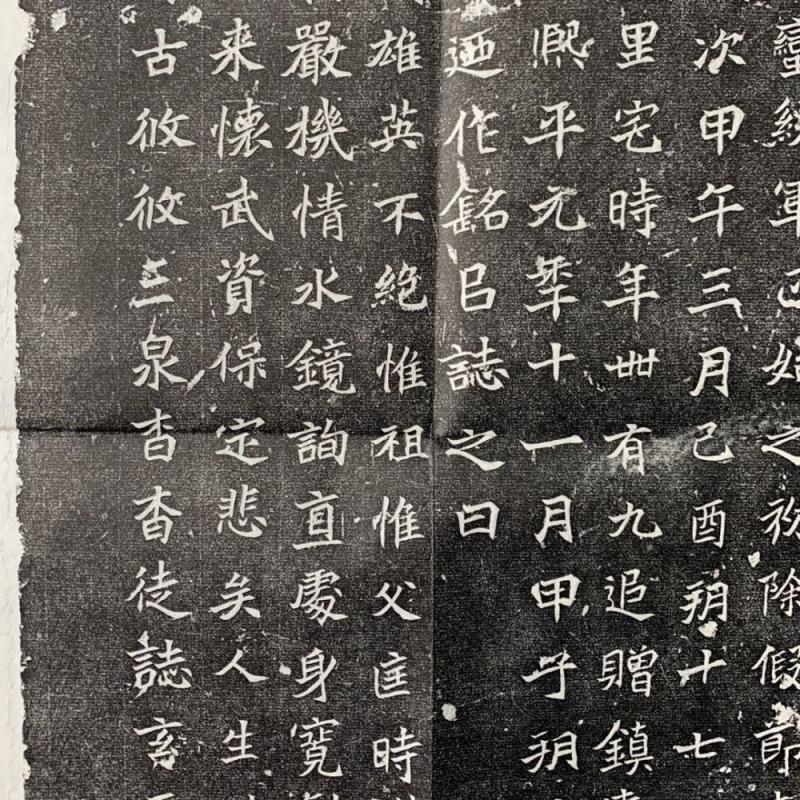 蠻統軍正始之初除假節
次甲午三月己酉朔十七
里宅時年卌有九追贈鎮
熙平元年十一月甲子朔
迺作銘㠯誌之曰
雄英不絶惟祖惟父匡時
嚴機情水鏡詢直處身寬
来懷武資保定悲矣人生
古攸攸三泉杳杳徒誌玄